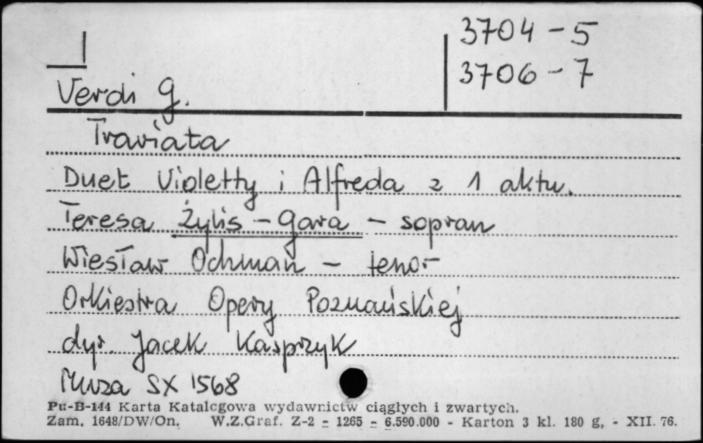 3704-5
3706-7
Verdi G.
Traviata
Duet Violetty i Alfreda z 1 aktu.
Teresa Żylis-Gara - sopran
Wiesław Ochman - tenor
Orkiestra Opery Poznańskiej
dyr Jacek Kasprzyk
Muza SX 1568
Pu-B-144 Karta Katalcgowa wydawnictw ciągłych i zwartych.
Zam. 1648/DW/On. W.Z.Graf. Z-2 - 1265 - 6.590.000 - Karton 3 kl. 180 g. - XII. 76.